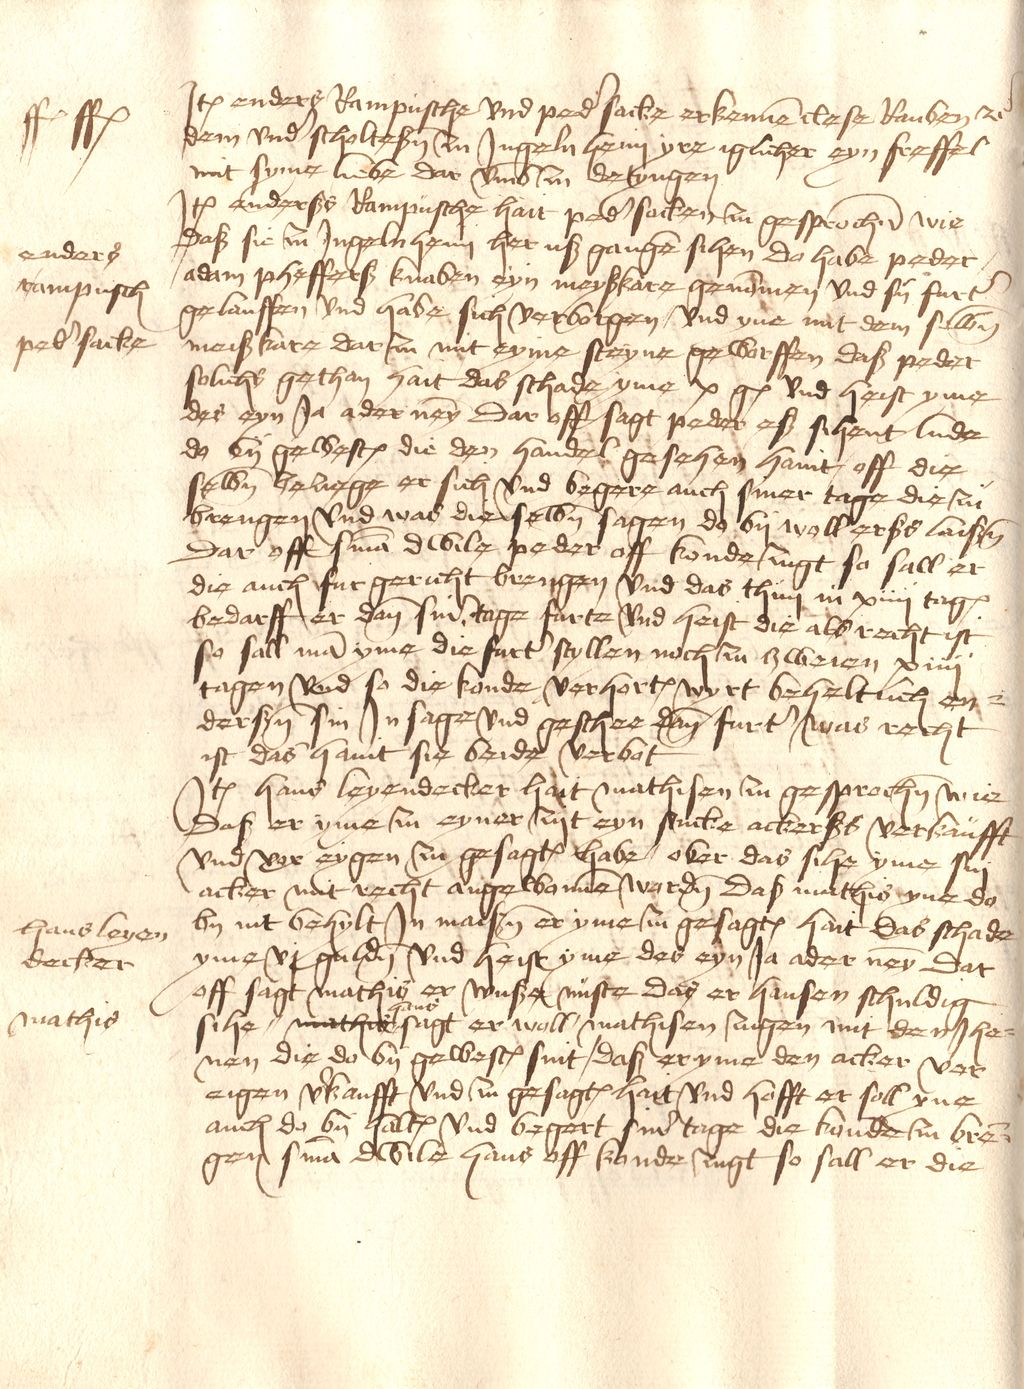 ff ff
Jt enders Rampusche vnd peder sacke erkenne clese Rauben
dem vnder scholtessen zu Jngelnheim yre iglicher eyn freffel
mit syme liebe dar vmb zu detyngen
enders
rampusch
peder sacke
Jt enderss Rampusche hait peder sacken zu gesprochen wie
Daß sie zu Jngelnheim her uß gangen sihen do habe peder
adam pheffers knaben eyn meyßkare genommen vnd sij furter
gelauffen vnd habe sich verborgen vnd yne mit dem selben
meißkare dar zu mit eyme steyne geworffen daß peder
solichs gethan hait das schade yme x g vnd heist yme
des eyn Ja ader ney Dar off sagt peder eß sihent lude
do bij gewest die den handel gesehen haint off die
selben beziege er sich vnd begere auch siner tage die zu
brengen vnd was die selben sagen do bij woll erß laissen
Dar off sima dwile peder off konde zugt so sall er
die auch fur gericht brengen vnd das thun in xiiij tag
bedarff er dan siner tage furte vnd heist die als recht ist
so sall ma yme die furter stellen noch zu zweien xiiij
tagen vnd so die konde verhort wyrt beheltlich en
dersen sin Jnsage vnd geschee dan furter was recht
ist das haint sie beide verbot
hans leyen
decker
mathis
Jt hans leyendecker hait mathisen zu gesprochen wie
Daß er yme zu eyner zijt eyn stucke ackerß verkaufft
vnd vor eygen zu gesagt habe ober das sihe yme sin
acker mit recht angewonnen worden Daß mathis yne do
by nit behylt Jn maissen er yme zu gesagt hait das schade
yme vj gulden vnd heist yme des eyn Ja ader ney Dar
off sagt mathis er wuße nuste das er hansen schuldig
sihe mathis hans sagt er woll mathisen zugen mit den Jhe
nen die do bij gewest sint daß er yme den acker ver
eigen verkaufft vnd zu gesagt hait vnd hofft er soll yne
auch do bij halt vnd begert siner tage die konde zu bren
gen sima dwile hans off konde zugt so sall er die